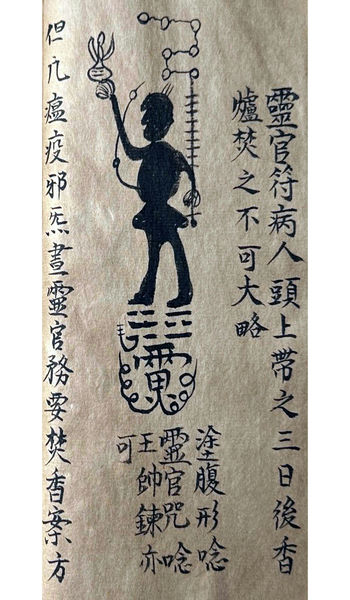 靈官符病人頭上帶之三日後香
爐焚之不可大略
塗腹形唸
靈官咒唸
王帥鍊亦
可
但凢瘟疫邪炁晝靈官務要焚香案方